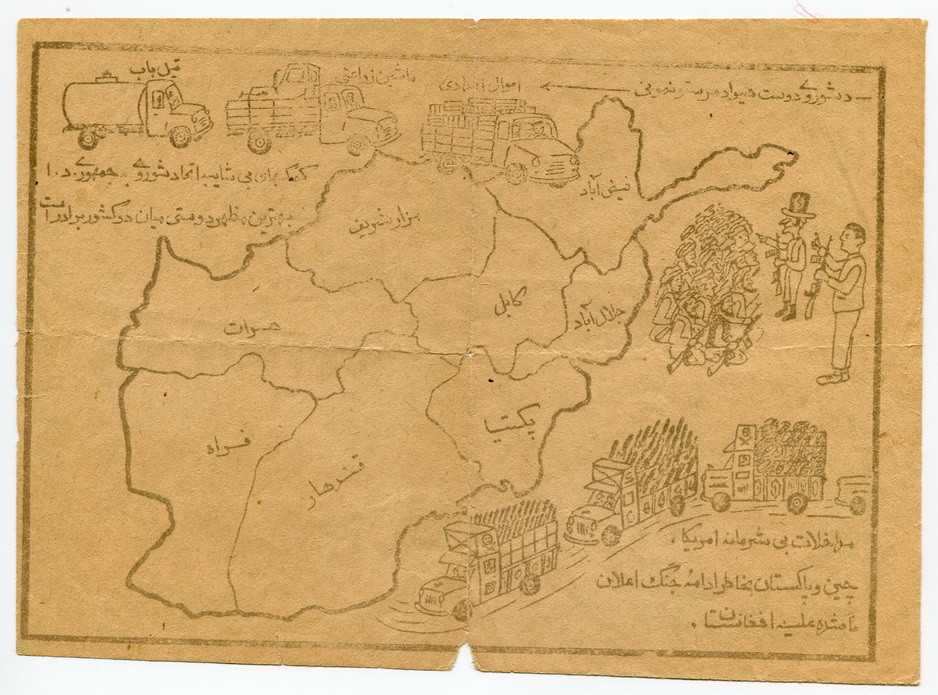 د شوروی دوست هیواد مرستو نمونې
اموال امدادی
ماشین زراعتی
تیل باب
کمک های بی شایبه اتحاد شوروی به جمهوری د. ا
بهترین مظهر دوستی میان دو کشور برادر است
فیض آباد
مزار شریف
کابل
جلال آباد
هرات
پکتیا
فراه
قندهار
مداخلات بی شرمانه امریکا،
چین و پاکستان بخاطر ادامهٔ جنگ اعلان
نا شده علیه افغانستان.